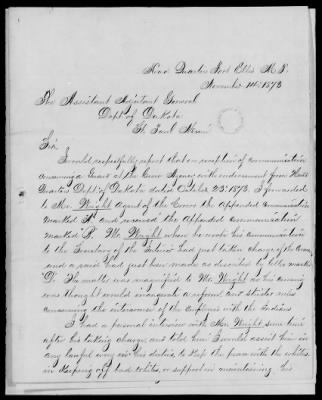 Head Quarters Fort Ellis M. T.
November 14th 1873
The Assistant Adjutant General
Dept of Dakota
St Paul Minn
Sir
I would respectfully report that on reception of communication
concerning a Guard at the Crow Agency with endorsement from Head
Quarters Dept of Dakota dated October 23d 1873. I forwarded
to Mr. Wright agent of the Crows the appended communication
marked "A" and received the appended communication
marked "B". Mr. Wright when he wrote his communication
to the Secretary of the Interior had just taken charge of the
and a raid had just been made as described by
"D" The matter was magnified to Mr Wright as his coming
was thought would inaugurate a reform and stricter rules
concerning the intercourse of the employees with the Indians
I had a personal interview with Mr. Wright some time
after his taking charge and told him I would assist him in
any lawful way in his duties, to keep the peace with the whites,
in keeping off bad whites, or support in maintaining his